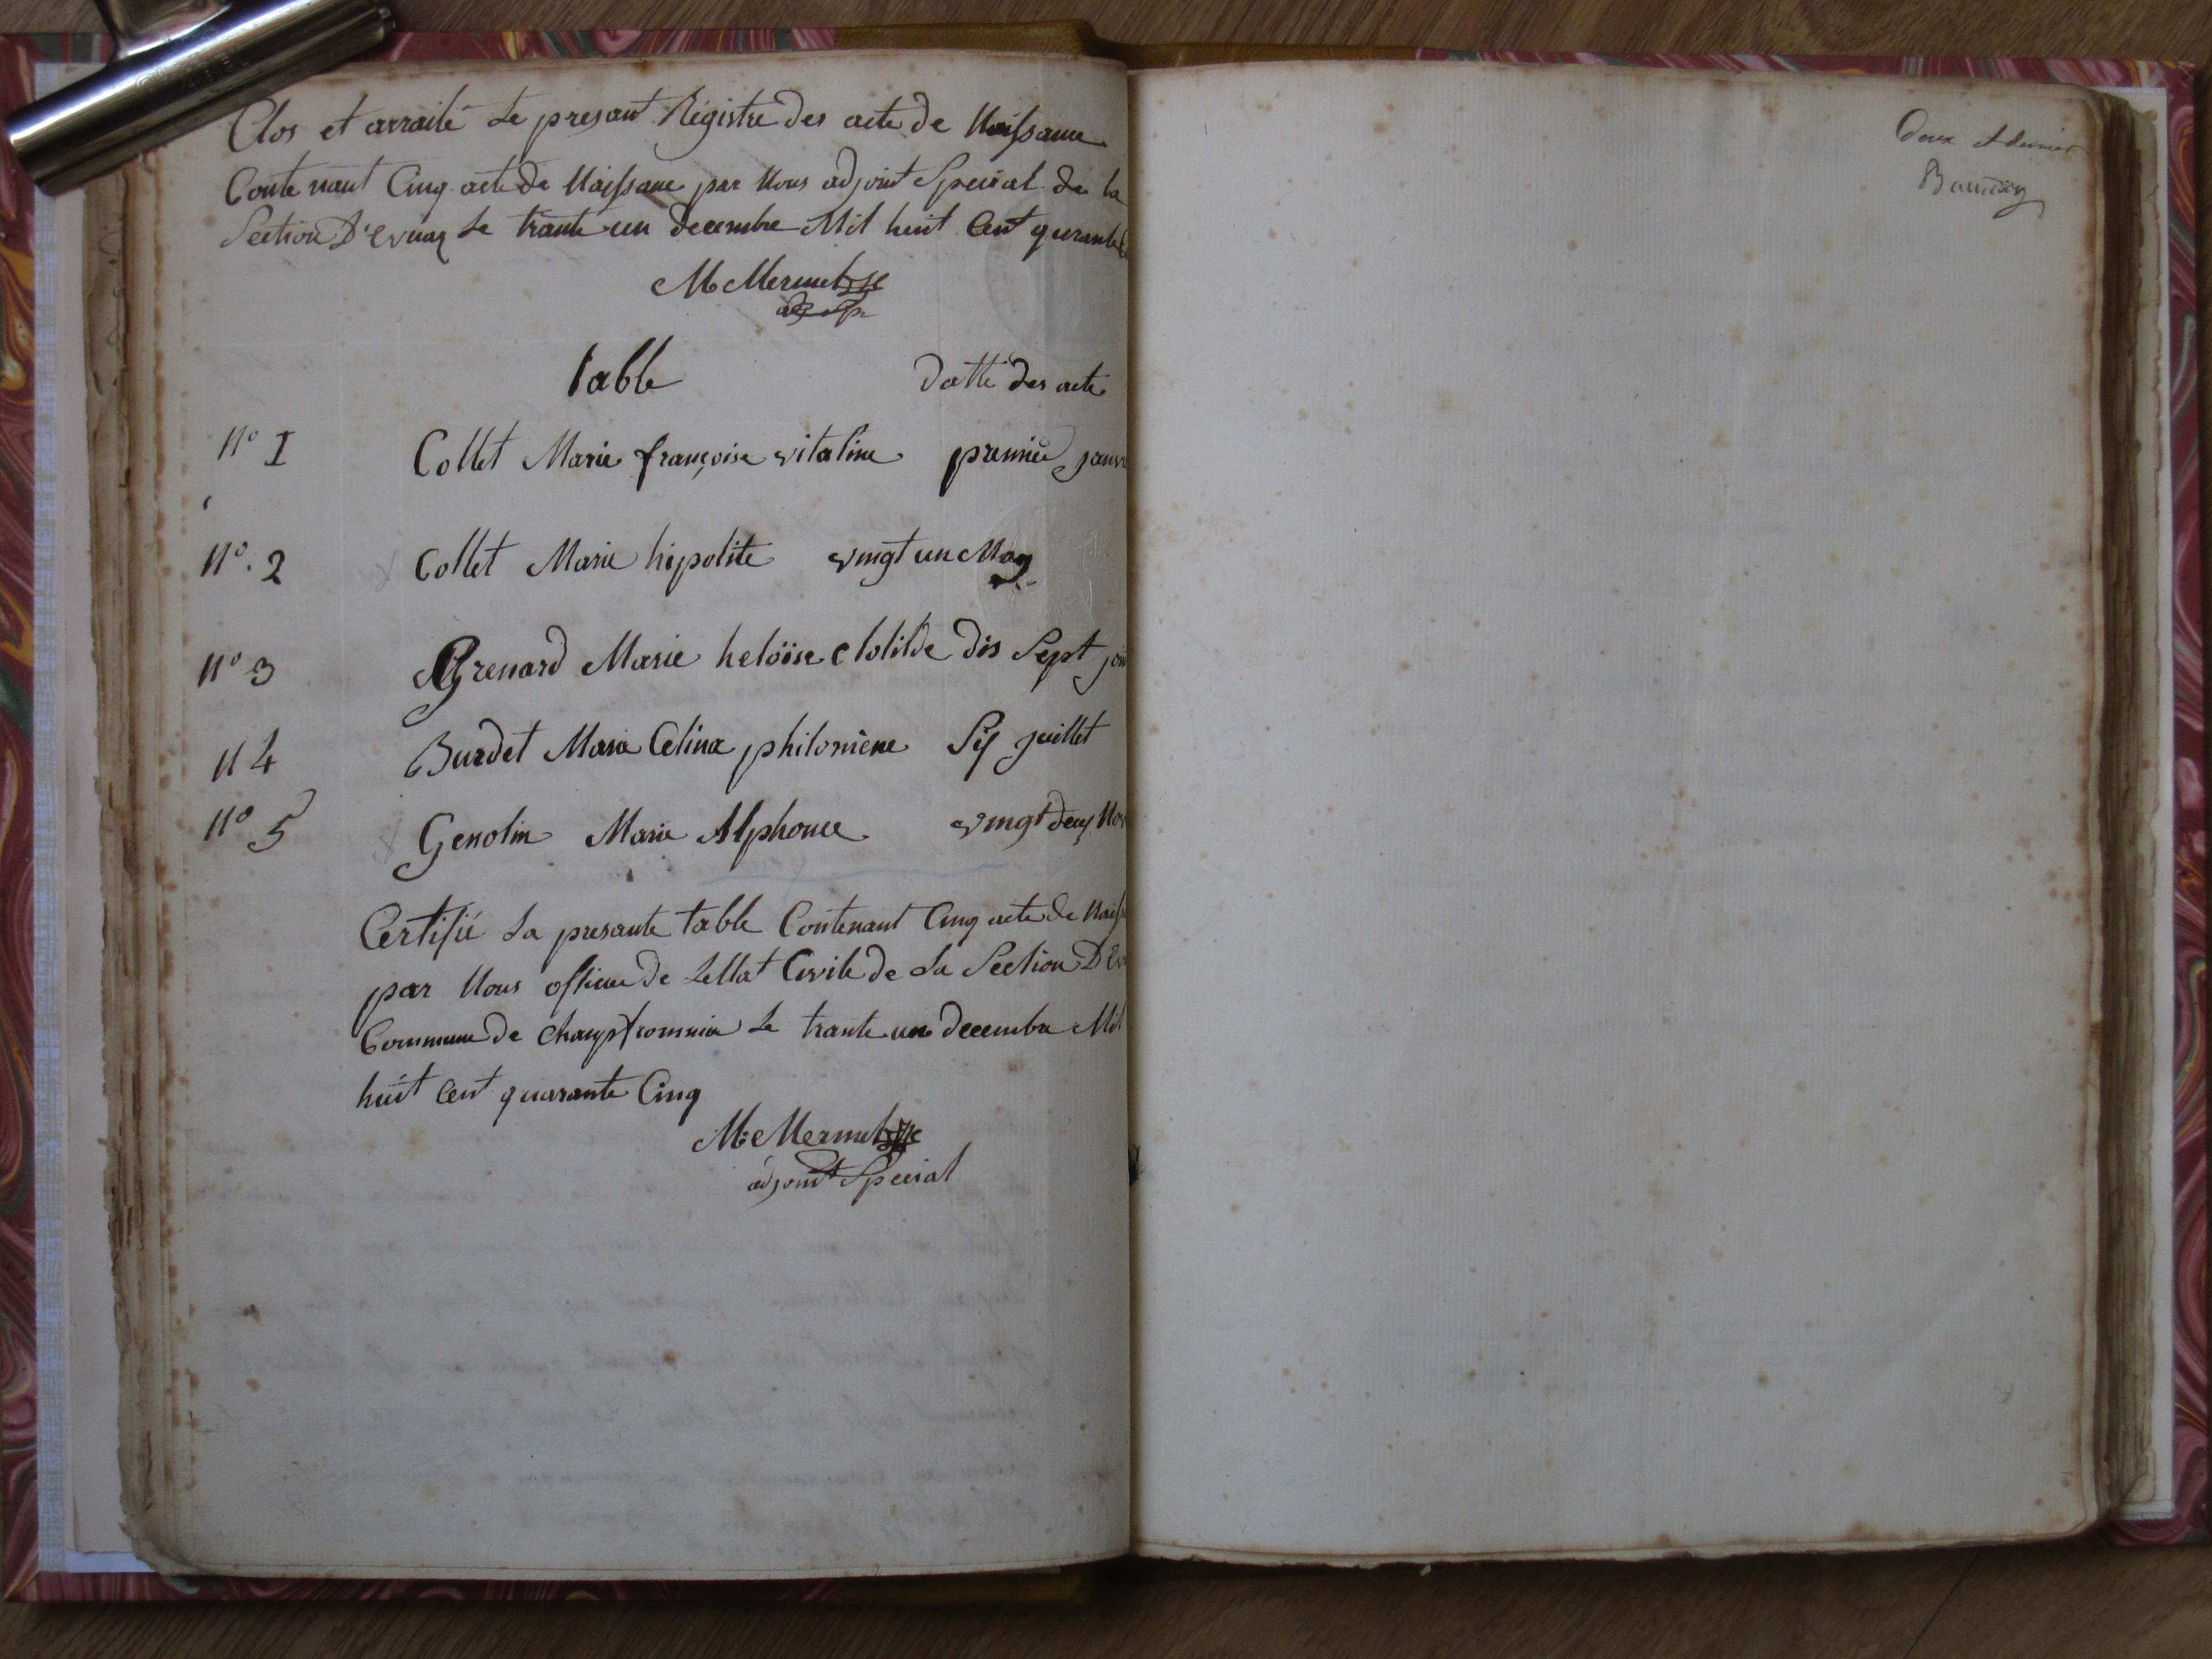 Clos et arraité le presant Régistre des acte de Naissance
Conte nant Cinq acte de Naissance par Nous adjoint Special de la
Section D'Evuaz le trante un decembre Mil huit Cent qurante
M Mermet
adj Sp
table datte des acte
N° 1 Collet Marie françoise vitaline premier janv
N°. 2 Collet Marie hipolite vingt un May
N° 3 Grenard Marie heloïse Clotilde dis Sept
N 4 Burdet Marie Celina philomène Six juillet
N° 5 Genolin Marie Alphonce vingt deux Nov
Certifié la presante table Contenant Cinq acte de Naiss
par Nous officier de Lettat Civile de la Section D'Ev
Commune de Champfromier le trante un decembre Mil
huit Cent quarante Cinq
M Mermet
adjoint Special
Deux et dernier